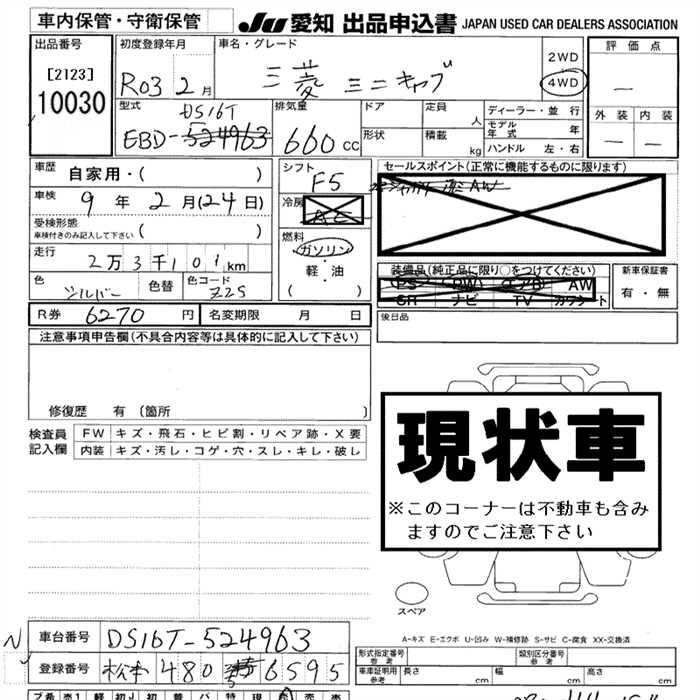 車内保管・守衛保管
JU 愛知 出品申込書 JAPAN USED CAR DEALERS ASSOCIATION
出品番号
[2123]
10030
初度登録年月
R03 2月
車名・グレード
三菱 ミニキャブ
2WD
4WD
評価点
―
外装 内装
― ―
型式
DS16T
EBD-524963
排気量
660 cc
ドア
形状
定員 人
積載 kg
ディーラー・並行
モデル年式 年
ハンドル 左・右
車歴 自家用・( )
車検 9年2月(24日)
受検形態
車検付きのみ記入して下さい ( )
走行 2万3千101km
色 シルバー
色替
色コード Z2S
シフト F5
冷房 AC
燃料
ガソリン
・
軽・油
( )
セールスポイント(正常に機能するものに限ります)
AW
装備品(純正品に限り○をつけてください)
PS PW エアB AW
SR ナビ TV カワシート
新車保証書
有・無
後日品
R券 6270円
名変期限 月 日
注意事項申告欄(不具合内容等は具体的に記入して下さい)
修復歴 有〔箇所 〕
検査員
記入欄
FW キズ・飛石・ヒビ割・リペア跡・X要
内装 キズ・汚レ・コゲ・穴・スレ・キレ・破レ
現状車
※このコーナーは不動車も含み
ますのでご注意下さい
スペア
A-キズ E-エクボ U-凹み W-補修跡 S-サビ C-腐食 XX-交換済
車台番号 DS16T-524963
登録番号 松本 480 6595
形式指定番号 参考
類別区分番号 参考
車車証明用 参考 長さ cm 幅 cm 高さ cm